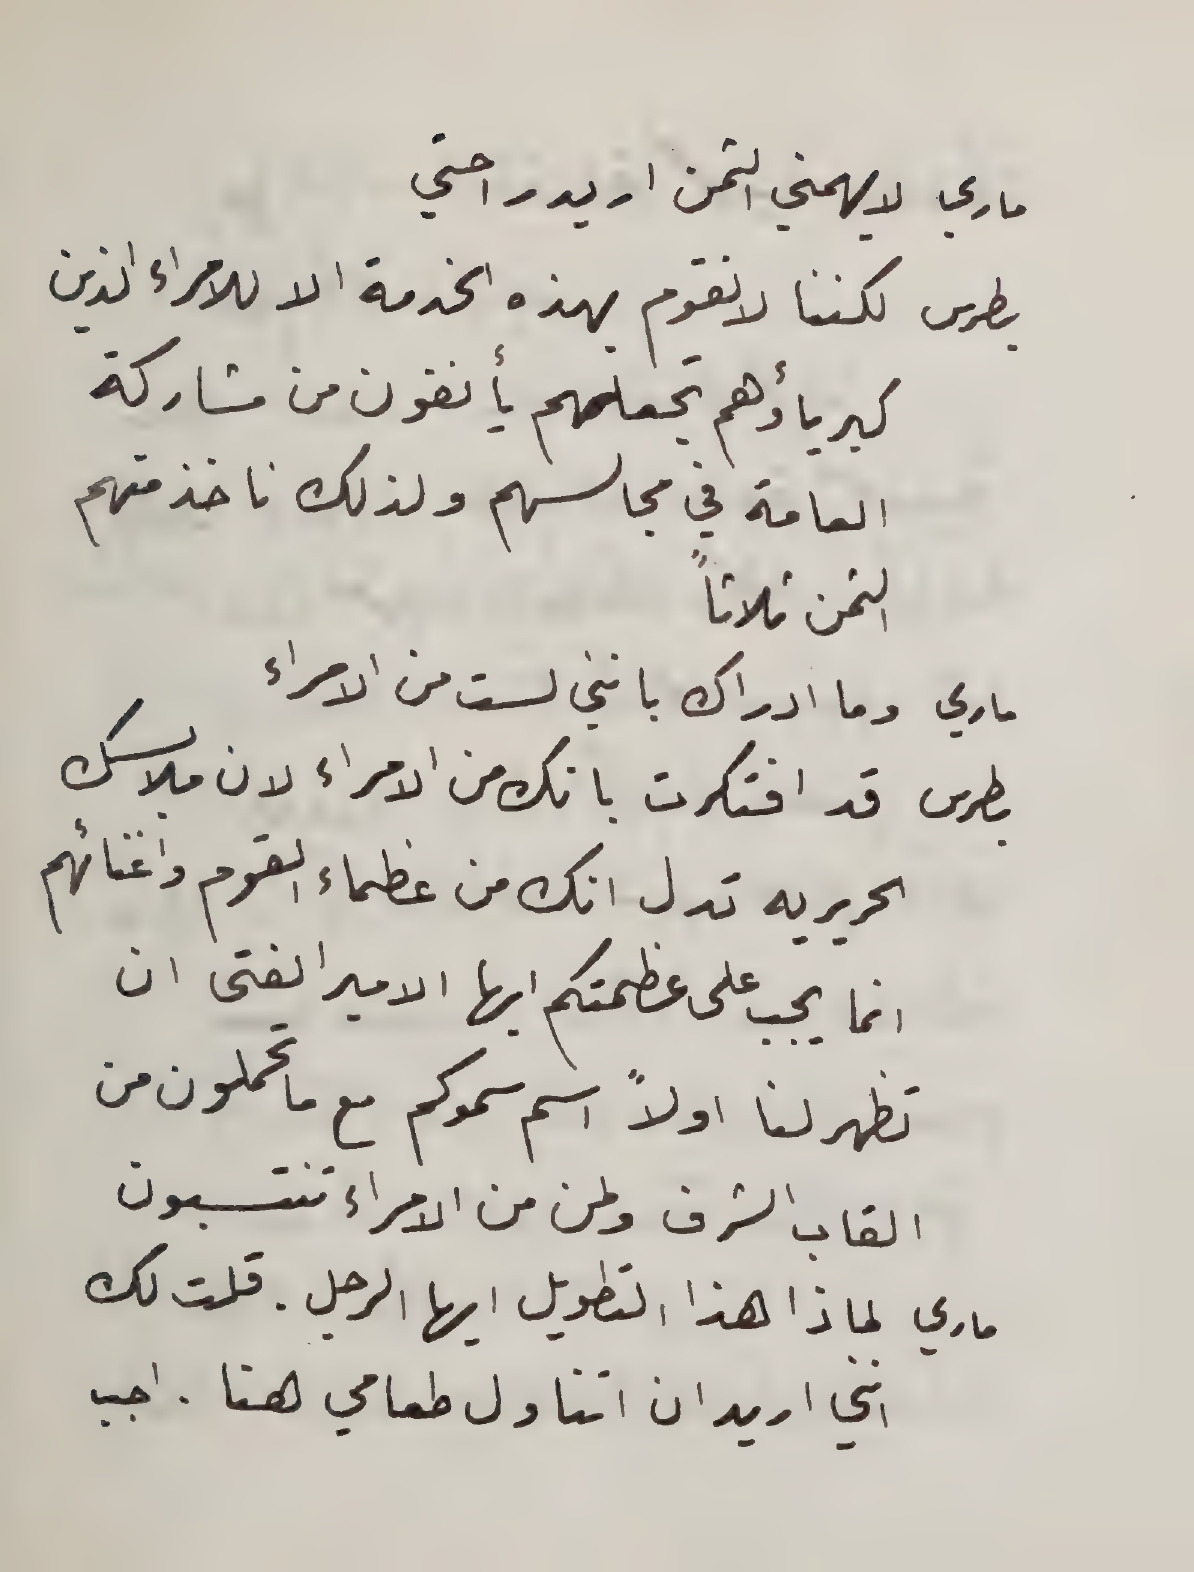 ماري لا يهمني الثمن اريد راحتي
بطرس لكننا لا نقوم بهذه الخدمة الا للامراء الذين
كبرياؤهم تجعلهم يأنفون من مشاركة
العامة في مجالسهم ولذلك ناخذ منهم
الثمن ثلاثاً
ماري وما ادراك بانني لست من الامراء
بطرس قد افتكرت بانك من الامراء لان ملابسك
الحريريه تدل انك من عظماء القوم واغنائهم
انما يجب على عظمتكم ايها الامير الفتى ان
تظهر لنا اولاً اسم سموكم مع ما تحملون من
القاب الشرف ولمن من الامراء تنتسبون
ماري لماذا هذا التطويل ايها الرجل . قلت لك
انني اريد ان اتناول طعامي هنا . اجب